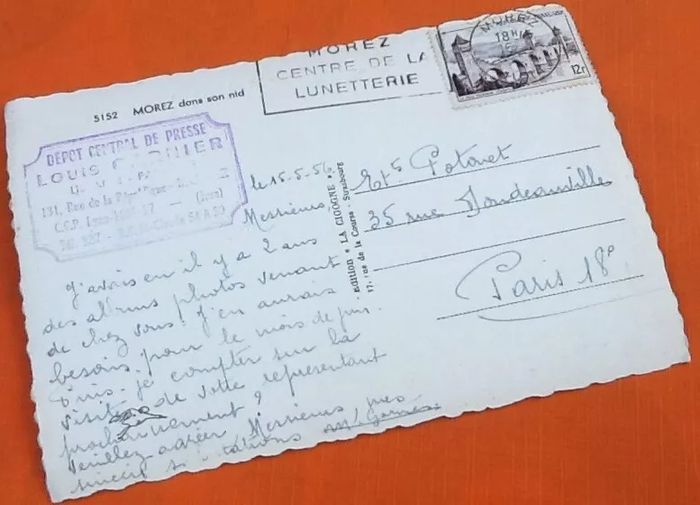 MOREZ
CENTRE DE LA
LUNETTERIE
MOREZ
18H
12F
5152 MOREZ dans son nid
DEPOT CENTRAL DE PRESSE
LOUIS
131, Rue de la
C.C.P. Lyon 17 — (Jura)
Tél. 327 -
le 15-5-56
Messieurs
J'avais eu il y a 2 ans
des albums photos venant
de chez vous. J'en aurais
besoins pour le mois de juin.
Puis-je compter sur la
visite de votre représentant
prochainement ?
Veuillez agréer Messieurs mes
salutations
Edition "LA CIGOGNE"
17, rue de la Course - Strasbourg
Ets Potonet
35 rue
Paris 18°